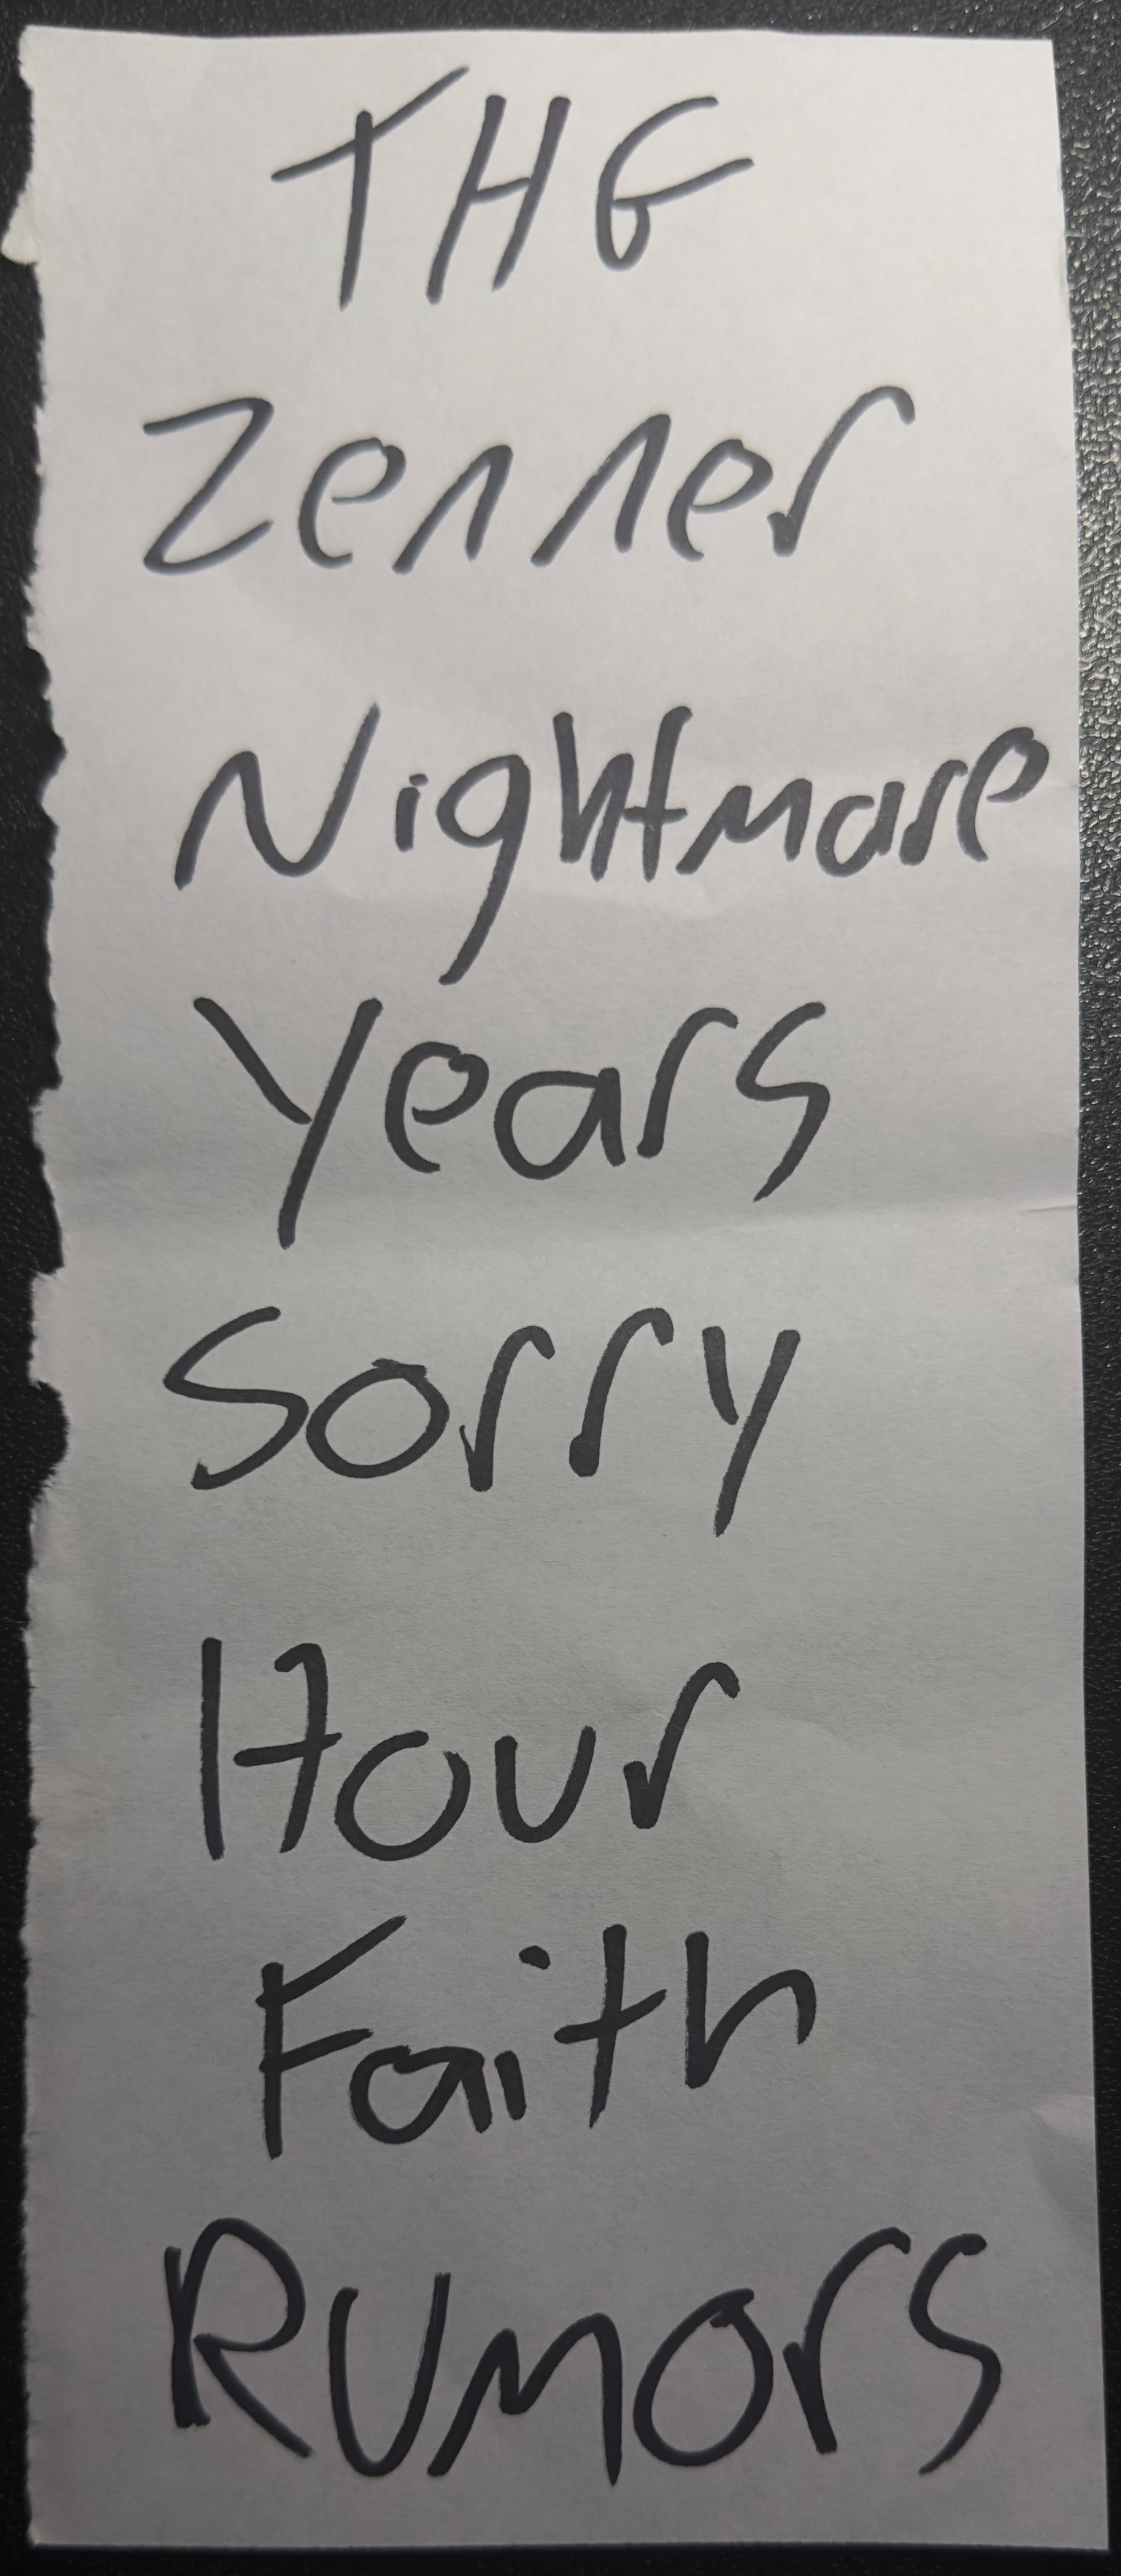 THE
Zenner
Nightmare
Years
Sorry
Hour
Faith
Rumors